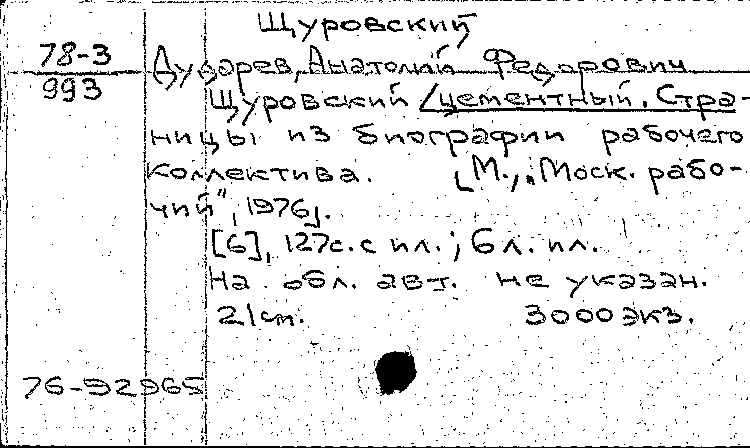 Щуровский
78-3 Дударев, Анатолий Федорович
993
Щуровский /цементный. Стра-
ницы из биографии рабочего
коллектива. [М., „Моск. рабо-
чий", 1976].
[6], 127с. с ил.; 6 л. ил.
На обл. авт. не указан.
21 cm. 3000 экз.
76-92965